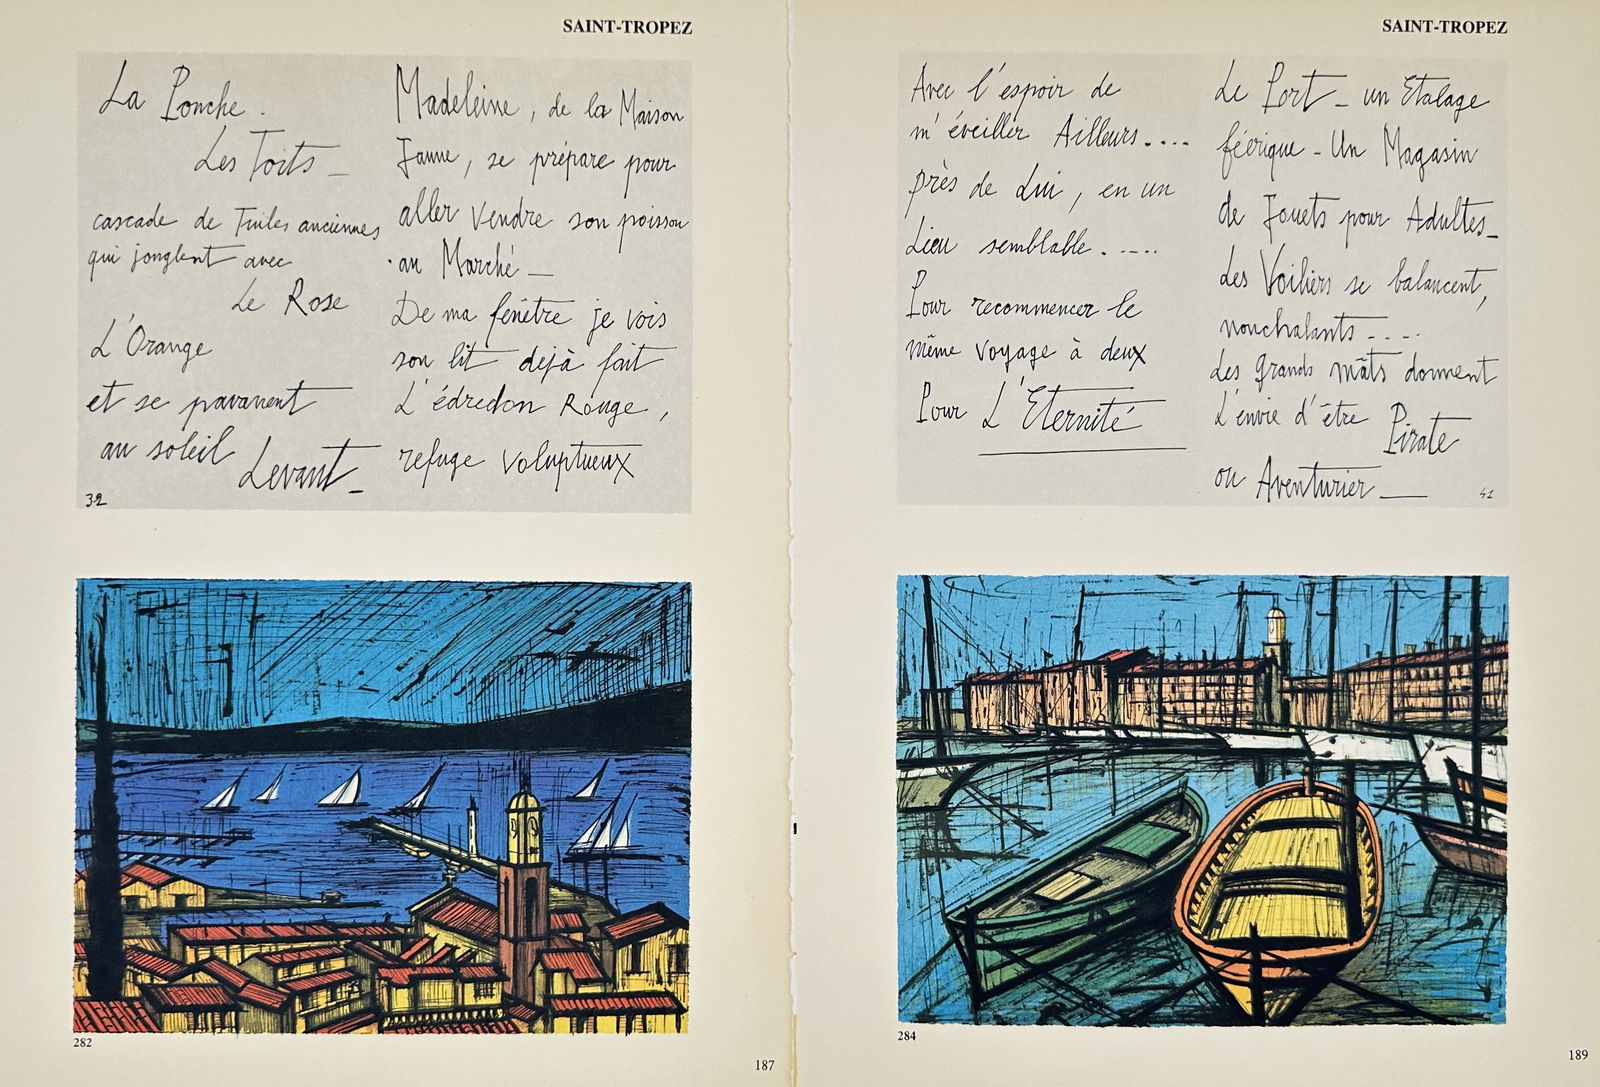 SAINT-TROPEZ
La Ponche.
Les Toits _
cascade de Tuiles anciennes
qui jonglent avec
Le Rose
L'Orange
et se pavanent
au soleil
Levant _
32
Madeleine, de la Maison
Jaune, se prépare pour
aller Vendre son poisson
au Marché _
De ma fenêtre je vois
son lit déjà fait
L'édredon Rouge,
refuge Voluptueux
282
187
SAINT-TROPEZ
Avec l'espoir de
m'éveiller Ailleurs....
près de Lui, en un
Lieu semblable.....
Pour recommencer le
même Voyage à deux
Pour L'Eternité
Le Port _ un Etalage
féérique _ Un Magasin
de Jouets pour Adultes _
Les Voiliers se balancent,
nonchalants....
Les grands mâts donnent
L'envie d'être Pirate
ou Aventurier _
41
284
189